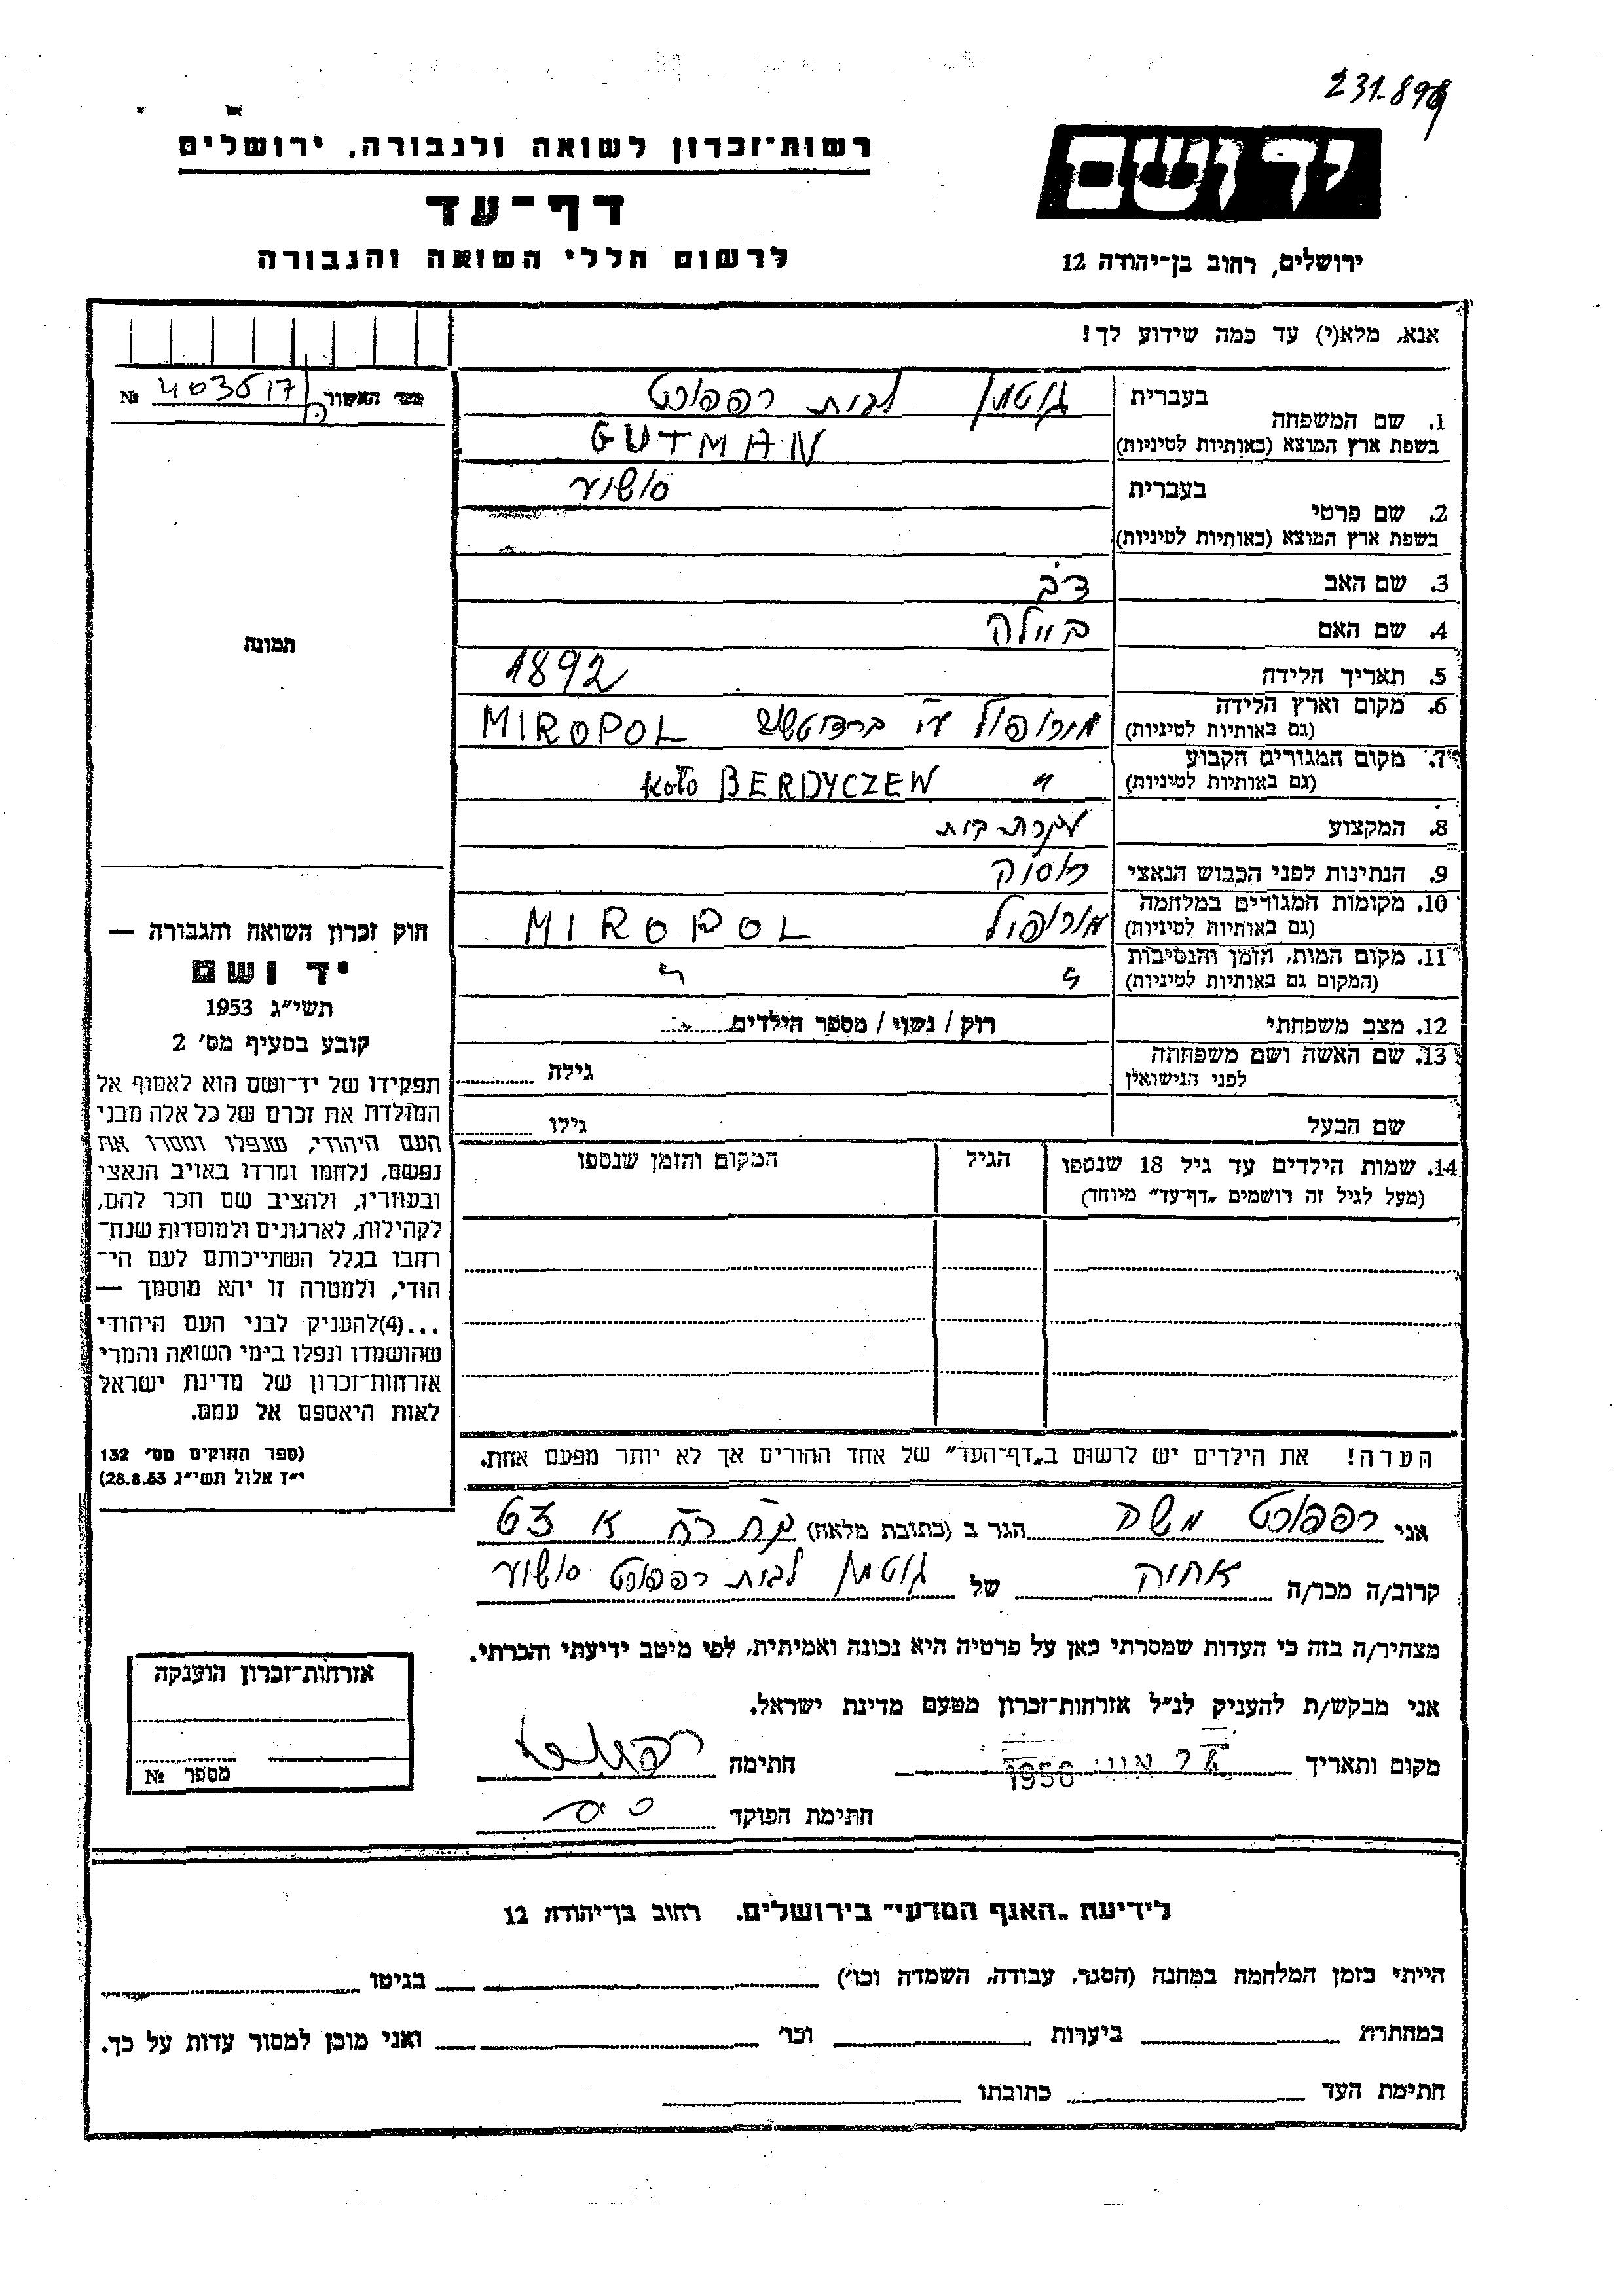 231.898
רשות־זכרון לשואה ולגבורה, ירושלים
ידושם
דף־עד
לרשום חללי השואה והגבורה
ירושלים, רחוב בן־יהודה 12
אנא, מלא(י) עד כמה שידוע לך!
מס׳ האשור № 403517
1. שם המשפחה
בעברית גוטמן לבית רפפורט
בשפת ארץ המוצא (באותיות לטיניות) GUTMAN
2. שם פרטי
בעברית
בשפת ארץ המוצא (באותיות לטיניות)
3. שם האב דב
4. שם האם ביילה
תמונה
5. תאריך הלידה 1892
6. מקום וארץ הלידה
(גם באותיות לטיניות) מירופול ע״י MIROPOL
7. מקום המגורים הקבוע
(גם באותיות לטיניות) " koło BERDYCZEW
8. המקצוע עקרת בית
9. הנתינות לפני הכבוש הנאצי
10. מקומות המגורים במלחמה
(גם באותיות לטיניות) מירופול MIROPOL
11. מקום המות, הזמן והנסיבות
(המקום גם באותיות לטיניות) " "
12. מצב משפחתי רוק / נשוי / מספר הילדים
13. שם האשה ושם משפחתה
לפני הנישואין גילה
שם הבעל גילו
14. שמות הילדים עד גיל 18 שנספו
(מעל לגיל זה רושמים „דף־עד״ מיוחד)
הגיל
המקום והזמן שנספו
חוק זכרון השואה והגבורה —
יד ושם
תשי״ג 1953
קובע בסעיף מס׳ 2
תפקידו של יד־ושם הוא לאסוף אל
המולדת את זכרם של כל אלה מבני
העם היהודי, שנפלו ומסרו את
נפשם, נלחמו ומרדו באויב הנאצי
ובעוזריו, ולהציב שם וזכר להם,
לקהילות, לארגונים ולמוסדות שנח־
רחבו בגלל השתייכותם לעם הי־
הודי, ולמטרה זו יהא מוסמך —
...(4)להעניק לבני העם היהודי
שהושמדו ונפלו בימי השואה והמרי
אזרחות־זכרון של מדינת ישראל
לאות היאספם אל עמם.
(ספר החוקים מס׳ 132
י״ז אלול תשי״ג 28.8.53)
הערה! את הילדים יש לרשום ב„דף־העד״ של אחד ההורים אך לא יותר מפעם אחת.
אני רפפורט משה הגר ב (כתובת מלאה)
קרוב/ה מכר/ה אחיה של גוטמן לבית רפפורט
מצהיר/ה בזה כי העדות שמסרתי כאן על פרטיה היא נכונה ואמיתית, לפי מיטב ידיעתי והכרתי.
אני מבקש/ת להעניק לנ״ל אזרחות־זכרון מטעם מדינת ישראל.
מקום ותאריך 1956 חתימה רפפורט
חתימת הפוקד
אזרחות־זכרון הוענקה
מספר №
לידיעת „האגף המדעי״ בירושלים. רחוב בן־יהודה 12
הייתי בזמן המלחמה במחנה (הסגר, עבודה, השמדה וכו׳) בגיטו
במחתרת ביערות וכו׳ ואני מוכן למסור עדות על כך.
חתימת העד כתובתו